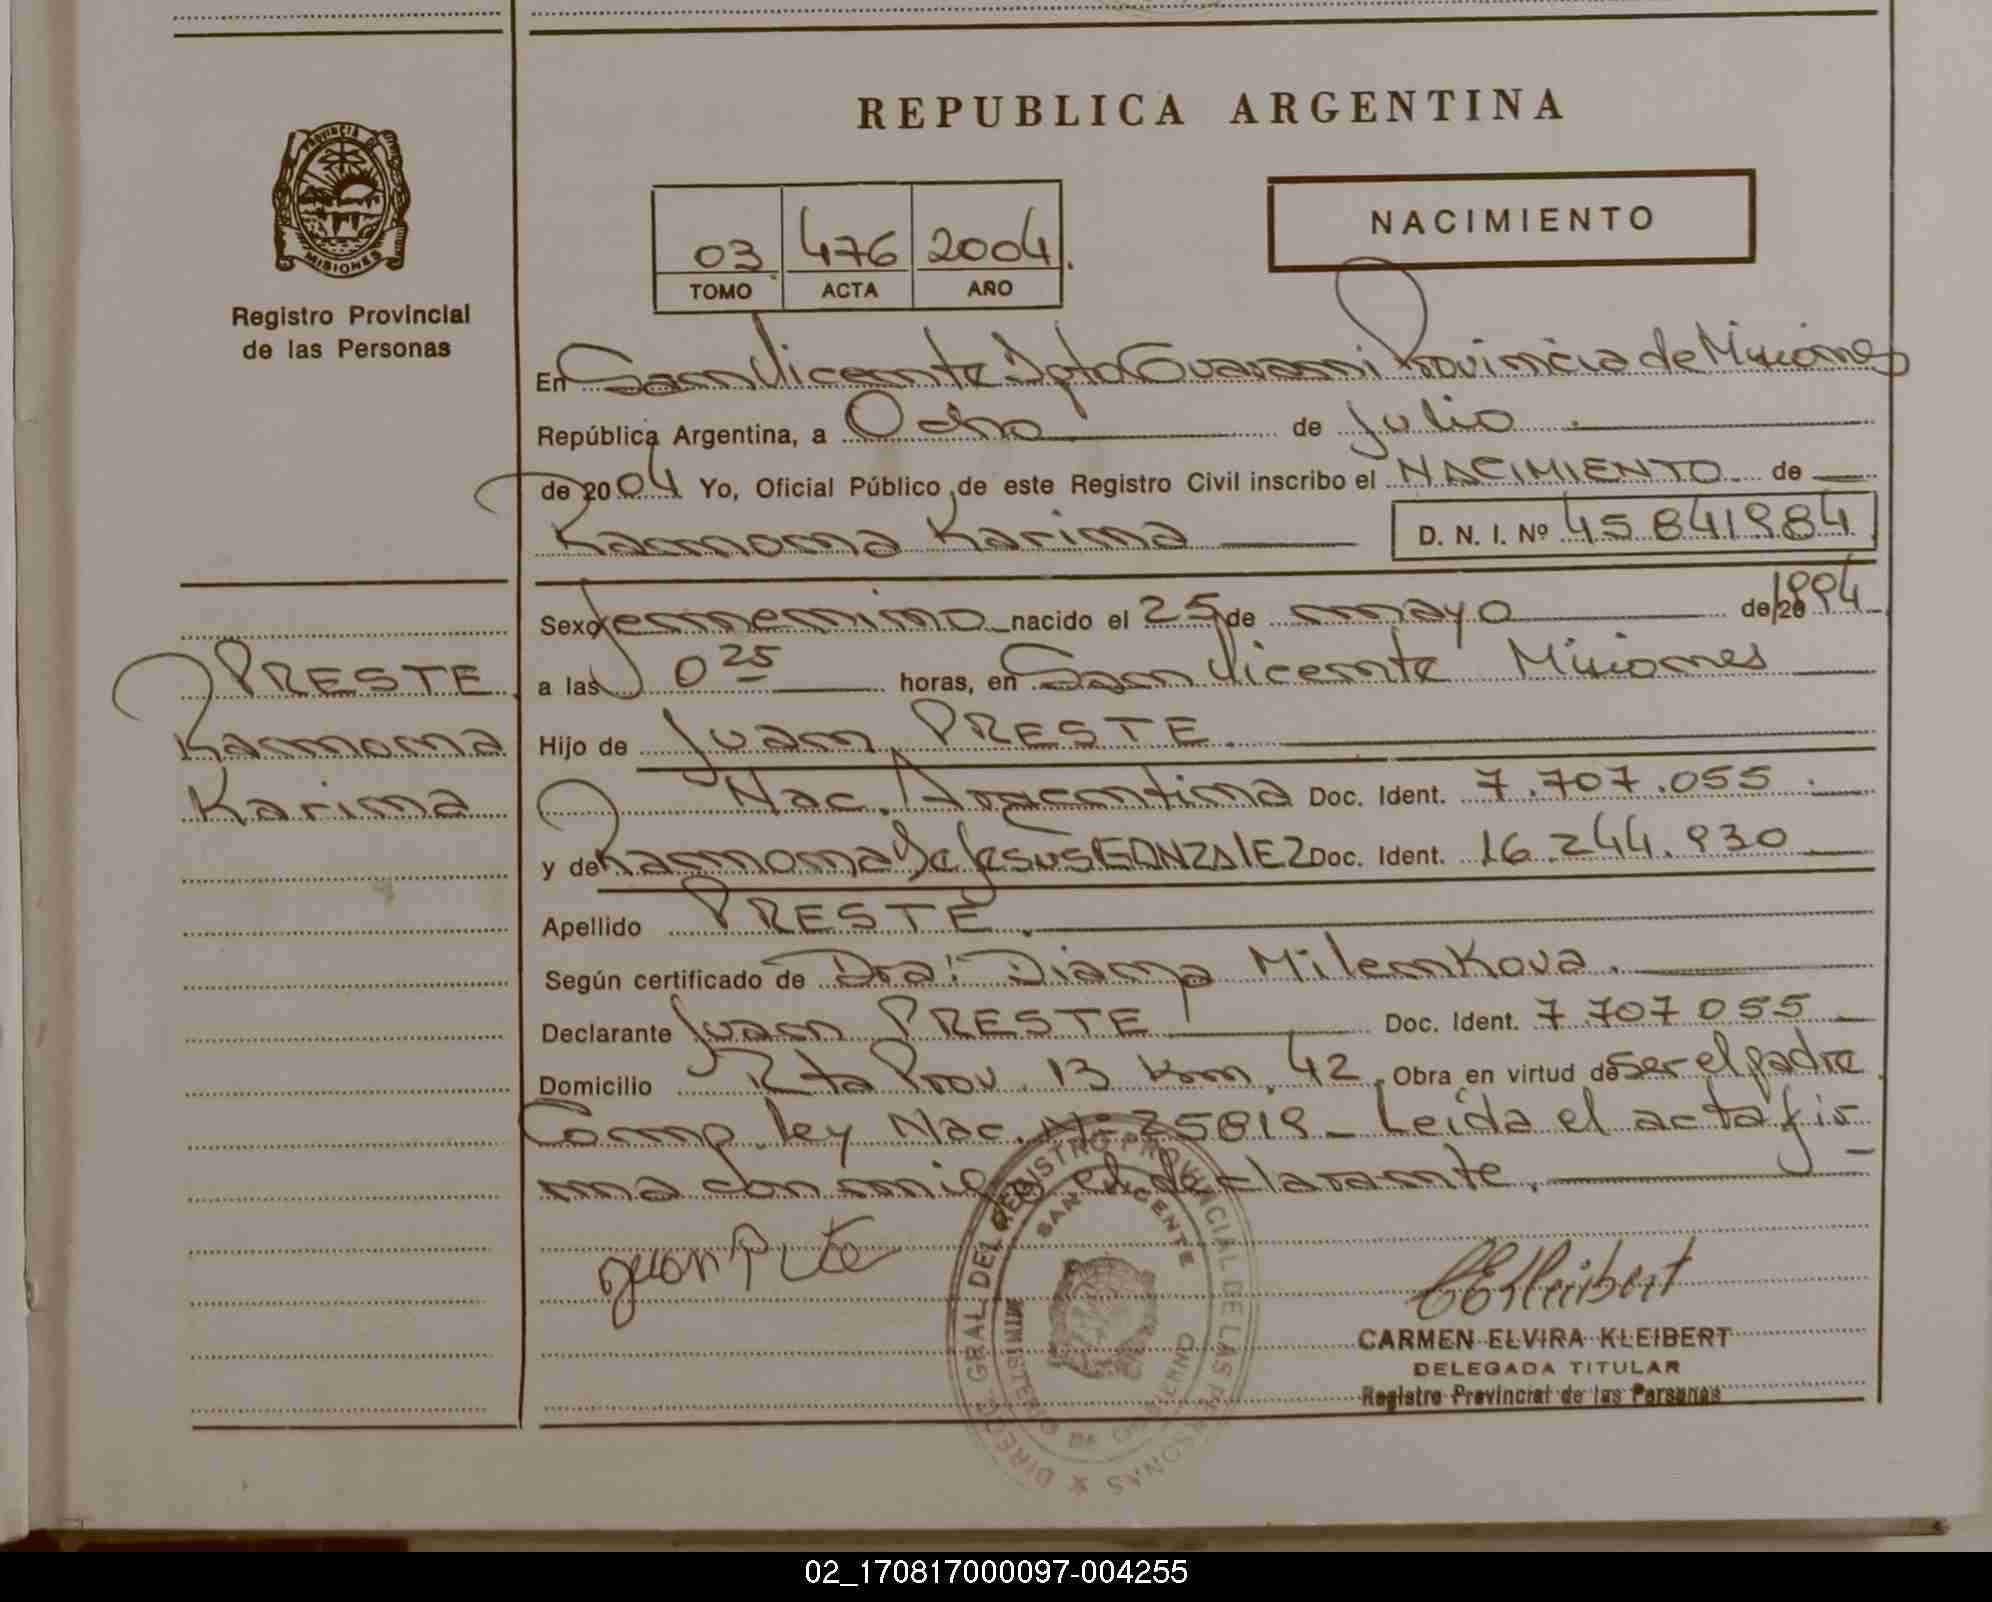 REPUBLICA ARGENTINA
PROVINCIA DE MISIONES
Registro Provincial
de las Personas
03 476 2004.
TOMO ACTA AÑO
NACIMIENTO
En San Vicente Dpto Guarani Provincia de Misiones
República Argentina, a Ocho de Julio
de 2004 Yo, Oficial Público de este Registro Civil inscribo el NACIMIENTO de
Ramona Karina D. N. I. Nº 45.841.984
Sexo femenino nacido el 25 de mayo de 20 1994
a las 0 25 horas, en San Vicente Misiones
Hijo de Juan PRESTE.
Nac. Argentina Doc. Ident. 7.707.055
y de Ramona De Jesus GONZALEZ Doc. Ident. 16.244.930
Apellido PRESTE.
Según certificado de Dra: Diana Milenkova.
Declarante Juan PRESTE Doc. Ident. 7.707.055
Domicilio Rta Prov. 13 Km. 42. Obra en virtud de ser el padre
Comp. ley Nac. Nº 25819_ Leída el acta fir
ma conmigo el declarante.
PRESTE
Ramona
Karina
DIREC. GRAL DEL REGISTRO PROVINCIAL DE LAS PERSONAS
SAN VICENTE
MINISTERIO DE GOBIERNO
CEKleibert
CARMEN ELVIRA KLEIBERT
DELEGADA TITULAR
Registro Provincial de las Personas
02_170817000097-004255